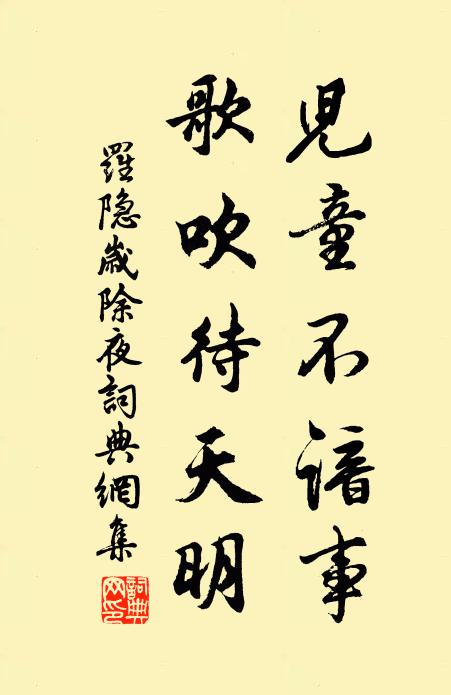 兒童不諳事
歌吹待天明
羅隐歲除夜詞典網集
詞典网印